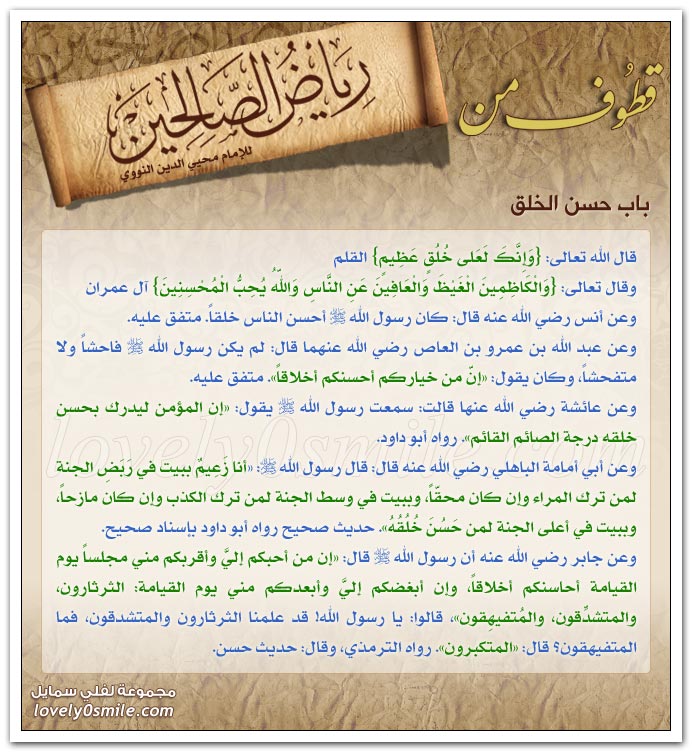 قطوف من
رياض الصالحين
للإمام محيي الدين النووي
باب حسن الخلق
قال الله تعالى: {وَإِنَّكَ لَعَلى خُلُقٍ عَظِيمٍ} القلم
وقال تعالى: {وَالْكَاظِمِينَ الْغَيْظَ وَالْعَافِينَ عَنِ النَّاسِ وَاللّهُ يُحِبُّ الْمُحْسِنِينَ} آل عمران
وعن أنس رضي الله عنه قال: كان رسول الله ﷺ أحسن الناس خلقاً. متفق عليه.
وعن عبد الله بن عمرو بن العاص رضي الله عنهما قال: لم يكن رسول الله ﷺ فاحشاً ولا
متفحشاً، وكان يقول: «إنّ من خياركم أحسنكم أخلاقاً». متفق عليه.
وعن عائشة رضي الله عنها قالت: سمعت رسول الله ﷺ يقول: «إن المؤمن ليدرك بحسن
خلقه درجة الصائم القائم». رواه أبو داود.
وعن أبي أمامة الباهلي رضي الله عنه قال: قال رسول الله ﷺ: «أنا زَعِيمٌ ببيت في رَبَضِ الجنة
لمن ترك المراء وإن كان محقّاً، وببيت في وسط الجنة لمن ترك الكذب وإن كان مازحاً،
وببيت في أعلى الجنة لمن حَسُنَ خُلُقُهُ». حديث صحيح رواه أبو داود بإسناد صحيح.
وعن جابر رضي الله عنه أن رسول الله ﷺ قال: «إن من أحبكم إليَّ وأقربكم مني مجلساً يوم
القيامة أحاسنكم أخلاقاً، وإن أبغضكم إليَّ وأبعدكم مني يوم القيامة: الثرثارون،
والمتشدِّقون، والمُتفيهِقون»، قالوا: يا رسول الله! قد علمنا الثرثارون والمتشدقون، فما
المتفيهقون؟ قال: «المتكبرون». رواه الترمذي، وقال: حديث حسن.
lovely0smile.com
مجموعة لفلي سمايل
lovely0smile.com